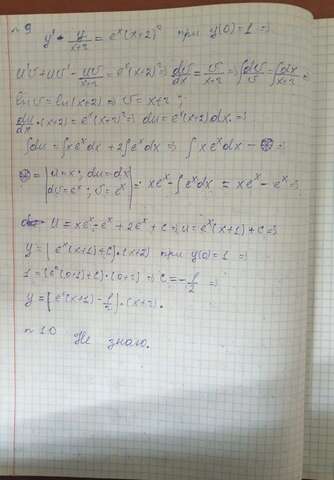 n 9
y' - y/(x+2) = eˣ(x+2)² при y(0)=1 ⇒
u'v + uv' - uv/(x+2) = eˣ(x+2)² ⇒ dv/dx = v/(x+2) ⇒ ∫dv/v = ∫dx/(x+2) ⇒
ln v = ln(x+2) ⇒ v = x+2 ;
du/dx · (x+2) = eˣ(x+2)² ⇒ du = eˣ(x+2)dx ⇒
∫du = ∫xeˣdx + 2∫eˣdx ⇒ ∫xeˣdx -
= | u=x ; du=dx ; dv=eˣ ; v=eˣ | = xeˣ - ∫eˣdx = xeˣ - eˣ ⇒
u = xeˣ - eˣ + 2eˣ + C ⇒ u = eˣ(x+1) + C ⇒
y = [eˣ(x+1)+C]·(x+2) при y(0)=1 ⇒
1 = (e⁰(0+1)+C)·(0+2) ⇒ C = -1/2 ⇒
y = [eˣ(x+1) - 1/2]·(x+2).
n 10
Не знаю.